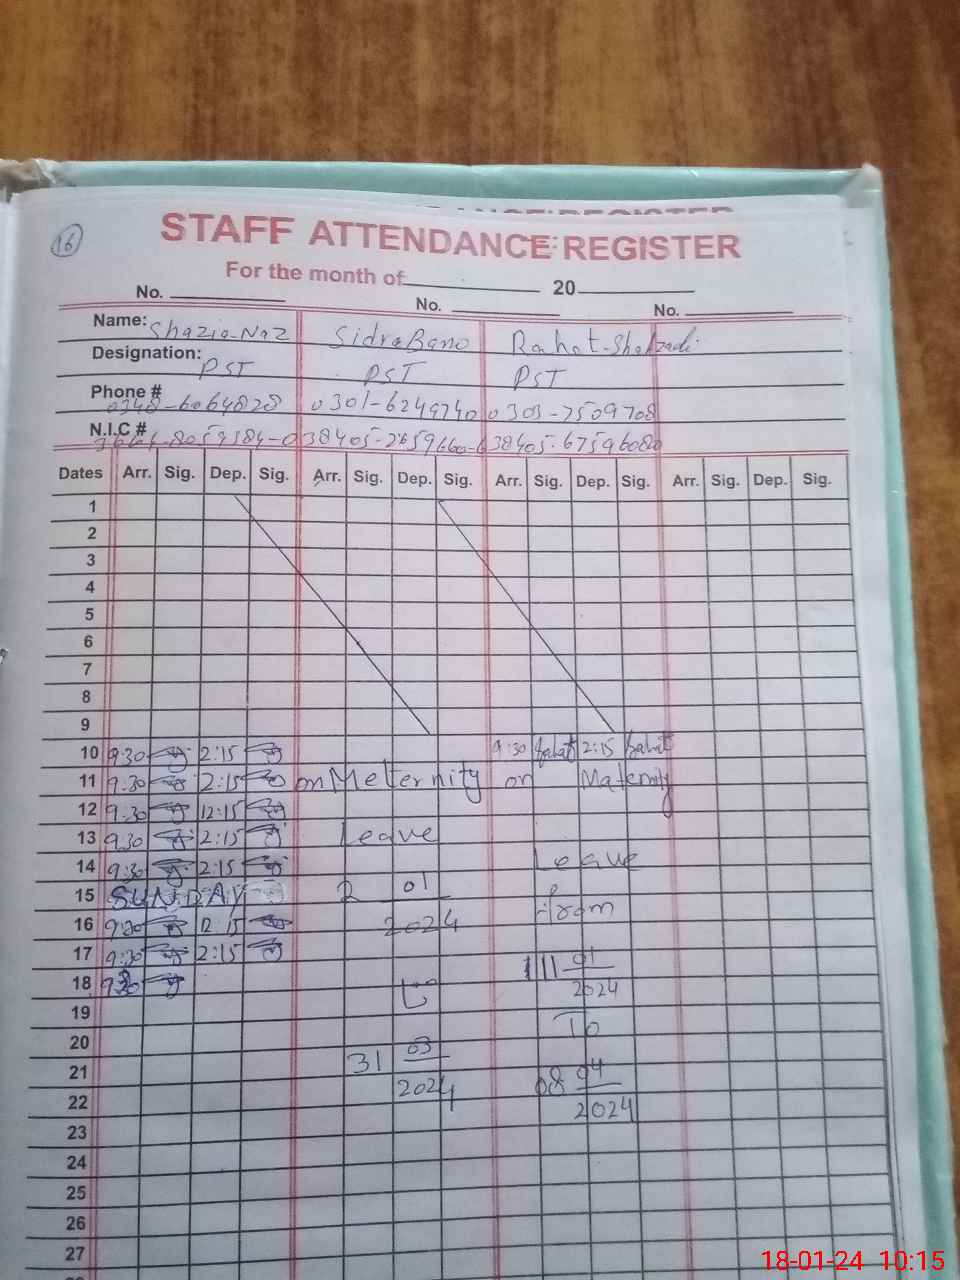 16
STAFF ATTENDANCE REGISTER
For the month of 20
No. No. No.
Name: Shazia-Naz Sidra Bano Rahat-Shahzadi
Designation: PST PST PST
Phone # 0348-6064828 0301-6249740 0303-7509708
N.I.C #
Dates Arr. Sig. Dep. Sig. Arr. Sig. Dep. Sig. Arr. Sig. Dep. Sig. Arr. Sig. Dep. Sig.
1
2
3
4
5
6
7
8
9
10 9:30 2:15 9:30 Rahat 2:15 Rahat
11 9:30 2:15 on Meternity on Maternity
12 9:30 12:15
13 9:30 2:15 Leave
14 9:30 2:15 Leave
15 SUNDAY 2 01
16 9:30 12:15 2024 from
17 9:30 2:15 11 01
18 9:30 to 2024
19 To
20 03
21 31 08 04
22 2024 2024
23
24
25
26
27
18-01-24 10:15